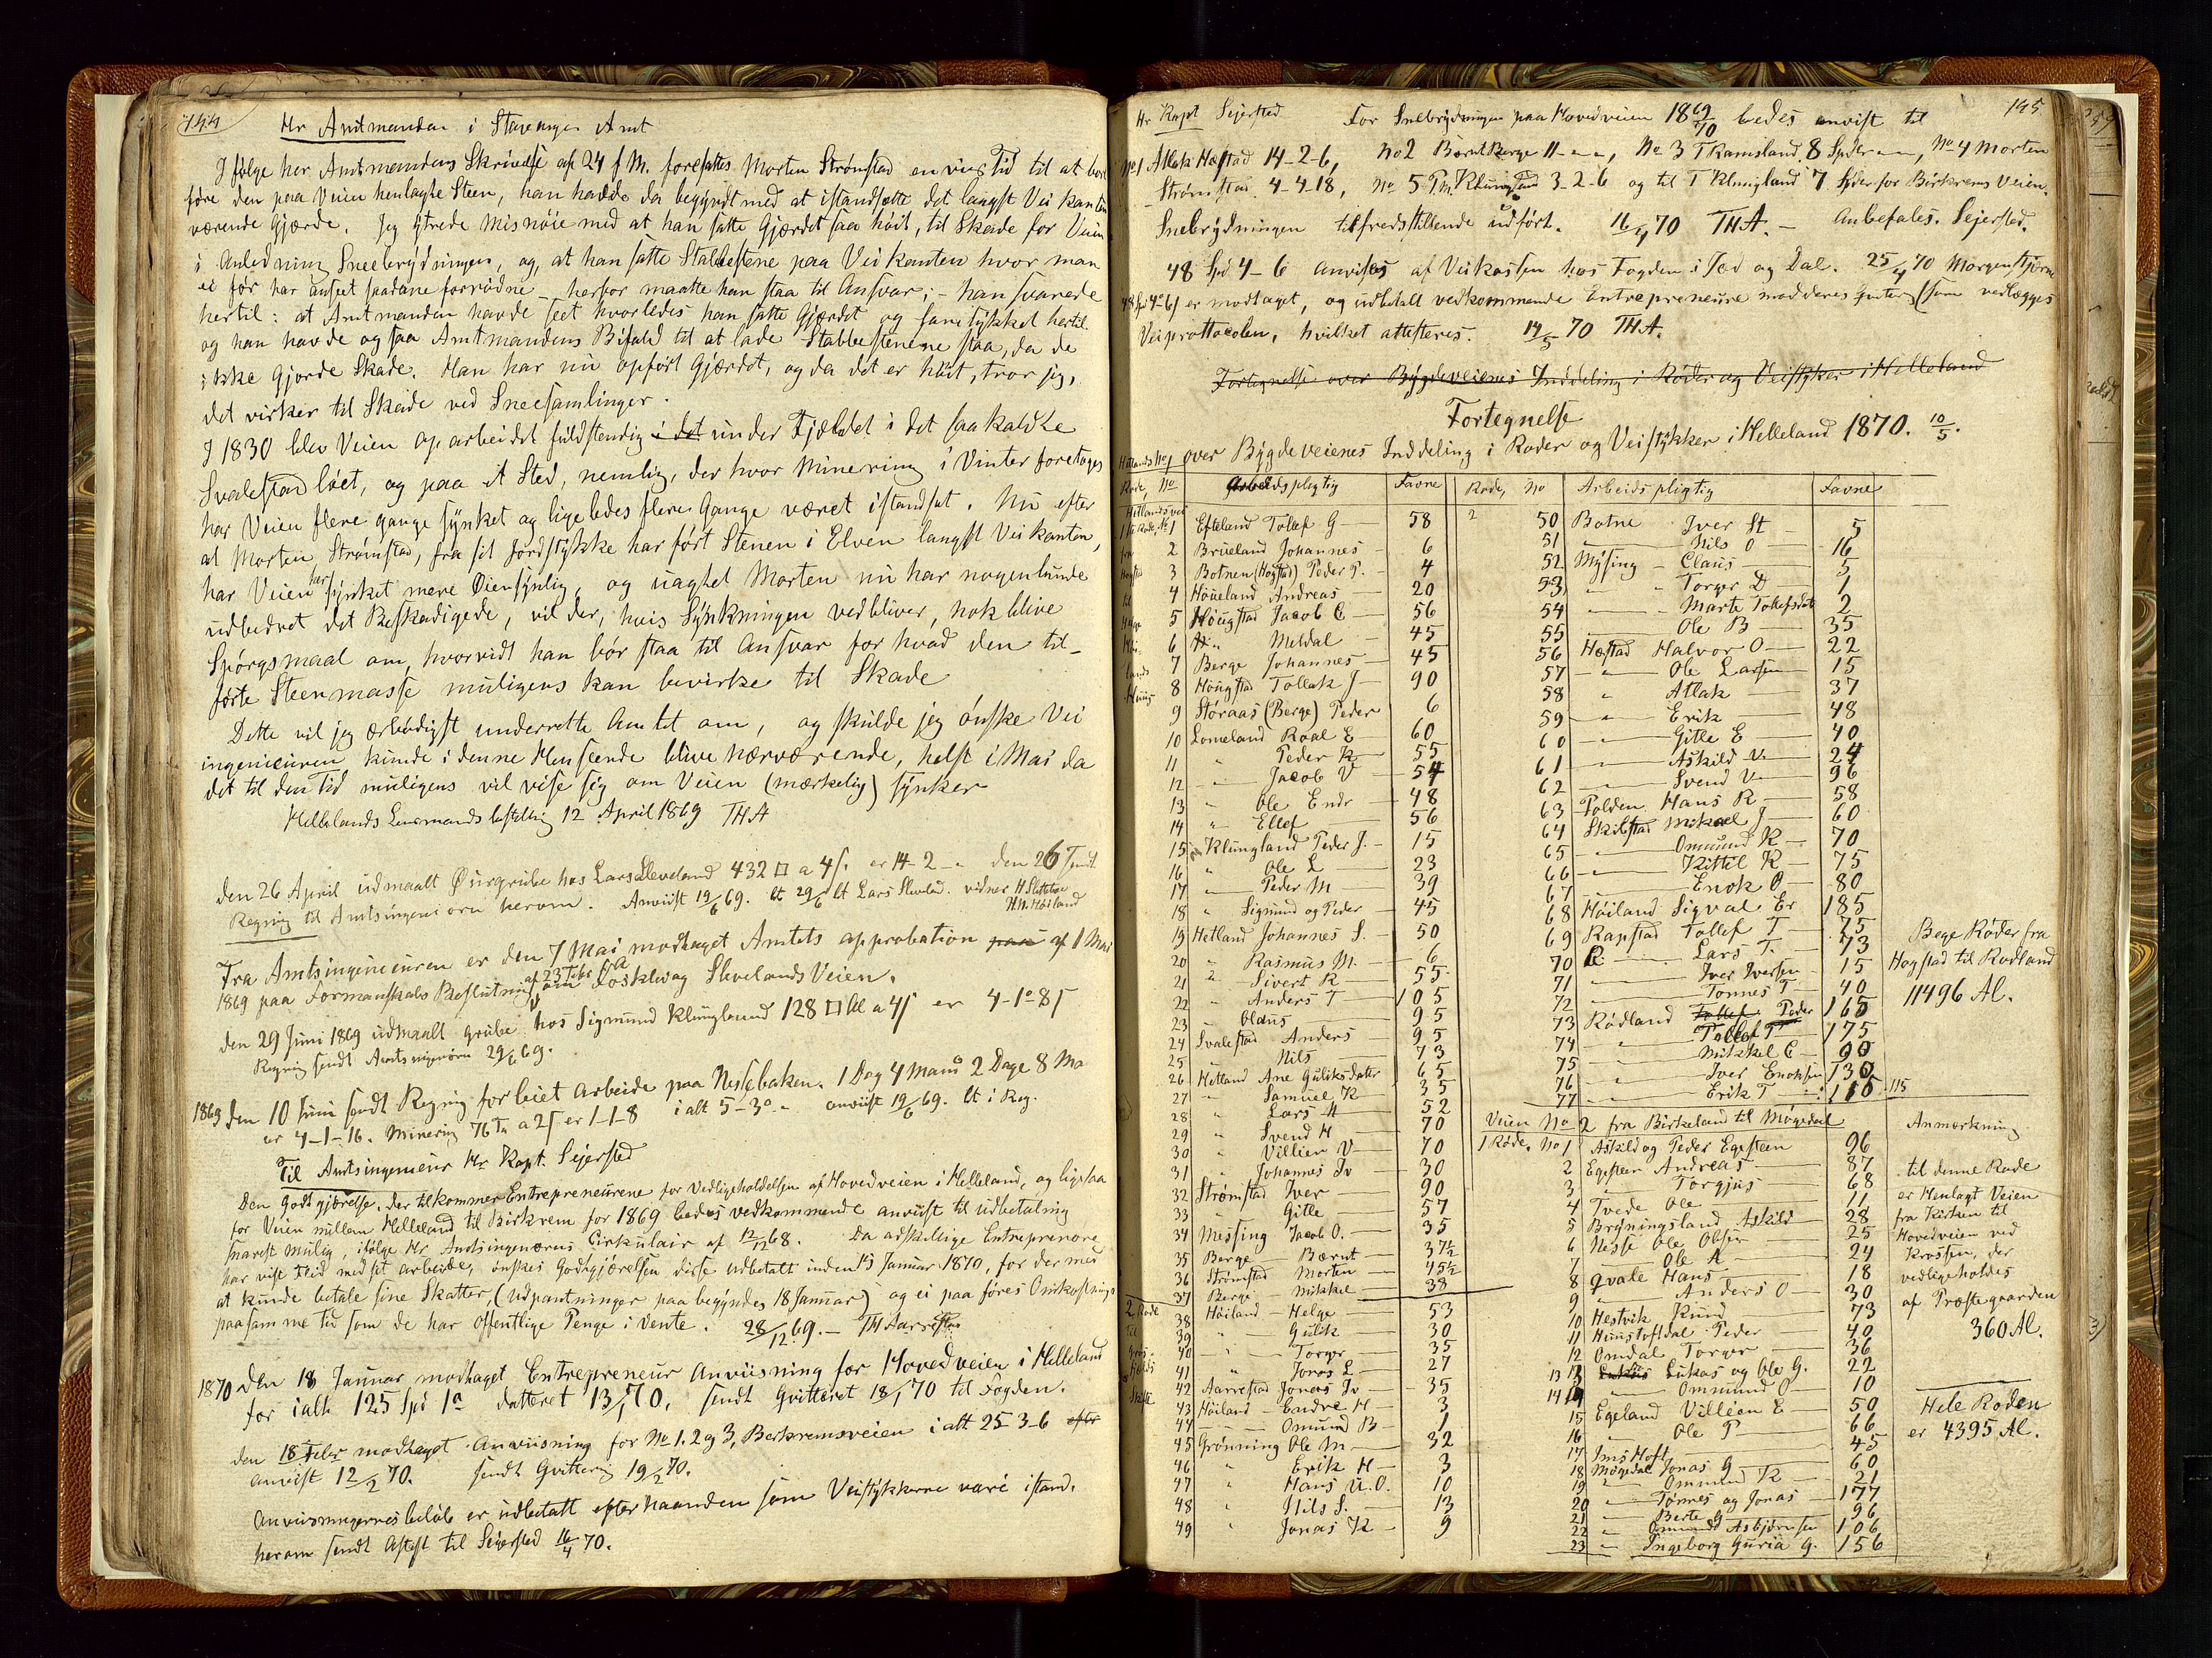 144
Hr Amtmanden i Stavanger Amt
Ifølge hr Amtmandens Skrivelse af 24 f. M. foresattes Morten Strømstad en vis Tid til at bort
føre den paa Veien henlagte Steen, han havde da begyndt med at istandsætte det langst Vei kanten
værende Gjærde. Jeg ytrede Misnøie med at han satte Gjærdet saa høit, til Skade for Veien
i Anledning Sneebrydningen, og, at han satte Stabbestene paa Vei kanten hvor man
ei før har anseet saadane fornødne – herfor maatte han staa til Ansvar; – han svarede
hertil: at Amtmanden havde seet hvorledes han satte Gjærdet og samtykket hertil.
og han havde og saa Amtmandens Bifald til at lade Stabbestenene staa, da de
ikke gjorde Skade. Han har nu opført Gjærdet, og da det er høit, tror jeg,
det virker til Skade ved Sneesamlinger.
I 1830 blev Veien oparbeidet fuldstendig i det under Fjældet i det saakaldte
Svalestadløet, og paa et Sted, nemlig, der hvor Minering i Vinter foretages
har Veien flere gange synket og ligeledes flere Gange været istandsat. Nu efter
at Morten Strømstad, fra sit Jordstykke har ført Stenen i Elven langst Vei kanten,
har Veien her synket mere Øiensynlig, og uagtet Morten nu har nogenlunde
udbedret det Beskadigede, vil der, hvis Synkningen vedbliver, nok blive
Spørgsmaal om, hvorvidt han bør staa til Ansvar for hvad den til-
førte Steenmasse muligens kan bevirke til Skade
Dette vil jeg ærbødigst underrette Amtet om, og skulde jeg ønske Vei
ingenieuren kunde i denne Henseende blive nærværende, helst i Mai da
det til den Tid muligens vil vise sig om Veien (mærkelig) synker
Hellelands Lensmandsbestilling 12 April 1869 THA
den 26 April udmaalt Øurgrube hos Lars Sleveland 432 □ a 4 s. er 14-2-" den 26 sendt
Regning til Amtsingeniøren herom. Anviist 19/6 69. Qt 29/6 Qt Lars Slevelad. vidner H Slettebø
H.N. Høiland
Fra Amtsingenieuren er den 7 Mai modtaget Amtets approbation paa af 1 Mai
1869 paa Formanskabs Beslutning af 23 Febr f.A om Foss og Slevelands Veien.
den 29 Juni 1869 udmaalt Grube hos Sigmund Klungland 128 □ Al a 4 s er 4-1°-8 s
Regning sendt Amtsingeniøren 29/6 69.
1869 den 10 Juni sendt Regning for leiet Arbeide paa Nestebakken. 1 Dag 4 Mand 2 Dage 8 Ma
er 4-1-16. Minering 76 T. a 2 s er 1-1-8 i alt 5-3°-" anviist 19/6 69. Qt i Reg.
Til Amtsingenieur Hr Kapt. Sejersted
Den Godtgjørelse, der tilkommer Entrepreneurene for Vedligeholdelsen af Hovedveien i Helleland, og ligesaa
for Veien millem Helleland til Birkrem for 1869 bedes vedkommende anviist til udbetaling
snarest mulig, ifølge Hr Amtsingeniørens Cirkulair af 12/12 68. Da adskillige Entreprenøre
har vist Flid med sit arbeide, ønskes Godtgjørelsen disse udbetalt inden 15 Januar 1870, for dermed
at kunde betale sine Skatter, (udpantninger paa begyndes 18 Januar) og ei paa føres Omkostninger
paa samme tid som de har Offentlige Penge i Vente. 28/12 69. – TH Aarrestad
1870 den 18 Januar modtaget Entrepreneur Anviisning for Hovedveien i Helleland
for ialt 125 Spd 1° datteret 13/1 70, sendt Gvitteret 18/1 70 til Fogden.
den 18 Febr modtaget Anviisning for No 1. 2 og 3, Berkremsveien i alt 25 3-6 efter
anviist 12/2 70. sendt Gvittering 19/2 70.
Anviisningernes beløb er udbetalt efterhaanden som Veistykkerne vare istand.
herom sendt Attest til Sejersted 16/4 70.
145
Hr Kapt Sejersted For Snebrydningen paa Hovedveien 1869/70 bedes anvist til
No 1 Atlak Hæstad 14-2-6, No 2 Bærnt Berge 11 - " - ", No 3 T Ramsland 8 Spder - " - ", No 4 Morten
Strømstad 4-4-18, No 5 P M. Klungland 3-2-6 og til T Klungland 7 Spder for Birkrems Veien.
Snebrydningen tilfredsstillende udført. 16/4 70 THA. – Anbefales. Sejersted.
48 Spd 4-6 anvises af Veikassen hos Fogden i Jæd og Dal. 25/4 70 Morgenstjerne
48 Spd 4-6 s er modtaget, og udbetalt vedkommende Entrepreneure mod deres (som vedlægges
Veiprottocolen, hvilket attesteres. 14/5 70 THA.
Fortegnelse over Bygdeveienes Inddeling i Roder og Veistykker i Helleland
Fortegnelse
over Bygdeveienes Inddeling i Roder og Veistykker i Helleland 1870. 10/5.
Rode, No Arbeidspligtig Favne Rode, No Arbeidspligtig Favne
1 Efteland Tollef G 58
2 Brueland Johannes 6
3 Botnen (Hogstad) Peder P. 4
4 Høueland Andreas 20
5 Hougstad Jacob C 56
6 " Meldal 45
7 Berge Johannes 45
8 Hougstad Tollak J 90
9 Støraas (Berge) Peder 6
10 Lomeland Roal E 60
11 " Peder K 55
12 " Jacob V 54
13 " Ole Endr 48
14 " Ellef 56
15 Klungland Peder J. 15
16 " Ole L 23
17 " Peder M 39
18 " Sigmund og Peder 45
19 Hetland Johannes S. 50
20 " Rasmus M. 6
21 " Sivert R 55
22 " Anders T 105
23 " Olaus 95
24 Svalestad Anders 95
25 " Nils 73
26 Hetland Ane Guliksdatter 65
27 " Samuel K 35
28 " Lars H 52
29 " Svend H 70
30 " Villien V 70
31 " Johannes Iv 30
32 Strømstad Iver 90
33 " Gitle 57
34 Messing Jacob O. 35
35 Berge Bærnt 37½
36 Strømstad Morten 45½
37 Berge Mikkel 38
2 Rode
38 Høiland Helge 53
39 " Gulik 30
40 " Torger 35
41 " Jonas L 27
42 Aarrestad Jonas Iv 35
43 Høiland Endre H 3
44 " Omund B 1
45 Grønning Ole M 32
46 " Erik H 3
47 " Hans U.O. 10
48 " Nils S. 13
49 " Jonas K 9
2 50 Botne Iver St 5
51 " Nils O 16
52 Mysing Claus 5
53 " Torger D 1
54 " Marte Tolefsdat 2
55 " Ole B 35
56 Hæstad Halvor O 22
57 " Ole Larsen 15
58 " Atlak 37
59 " Erik 48
60 " Gitle E 40
61 " Askild V. 24
62 " Svend V. 96
63 Polden Hans R 58
64 Skibstad Mikael J 60
65 " Omund K 70
66 " Kittil K 75
67 " Enok O 80
68 Høiland Sigval Er 185
69 Rapstad Tollef T 75
70 " Lars T. 73
71 " Iver Iversen 15
72 " Tonnes T 40
73 Rødland Tollef Peder 165
74 " Tollef T 175
75 " Mikkel C 90
76 " Iver Enoksen 130
77 " Erik T 110 115
Bege Roder fra
Hogstad til Rødland
11496 Al.
Veien No 2 fra Birkeland til Møgedal
Anmærkning
1 Rode. No 1 Askild og Peder Egesteen 96
2 Egesteen Andreas 87
3 " Torgjus 68
4 Tvede Ole 11
5 Bryningsland Askild 28
6 Nesse Ole Olsen 25
7 " Ole A 24
8 Qvale Hans 18
9 " Anders O 30
10 Hestvik Knud 73
11 Hunstoftdal Peder 40
12 Omdal Torger 36
13 Lukas og Ole G. 22
14 " Ommund O 10
15 Egeland Villien E 50
16 " Ole P 66
17 Ims Hoft 45
18 Møgedal Jonas G 60
19 " Ommund K 21
20 " Tønnes og Jonas 177
21 " Berte G 96
22 " Omund Asbjørnsen 106
23 " Ingeborg Guria G. 156
til denne Rode
er Henlagt Veien
fra Kirken til
Hovedveien ved
Krossen, der
vedligeholdes
af Præstegaarden
360 Al.
Hele Roden
er 4395 Al.